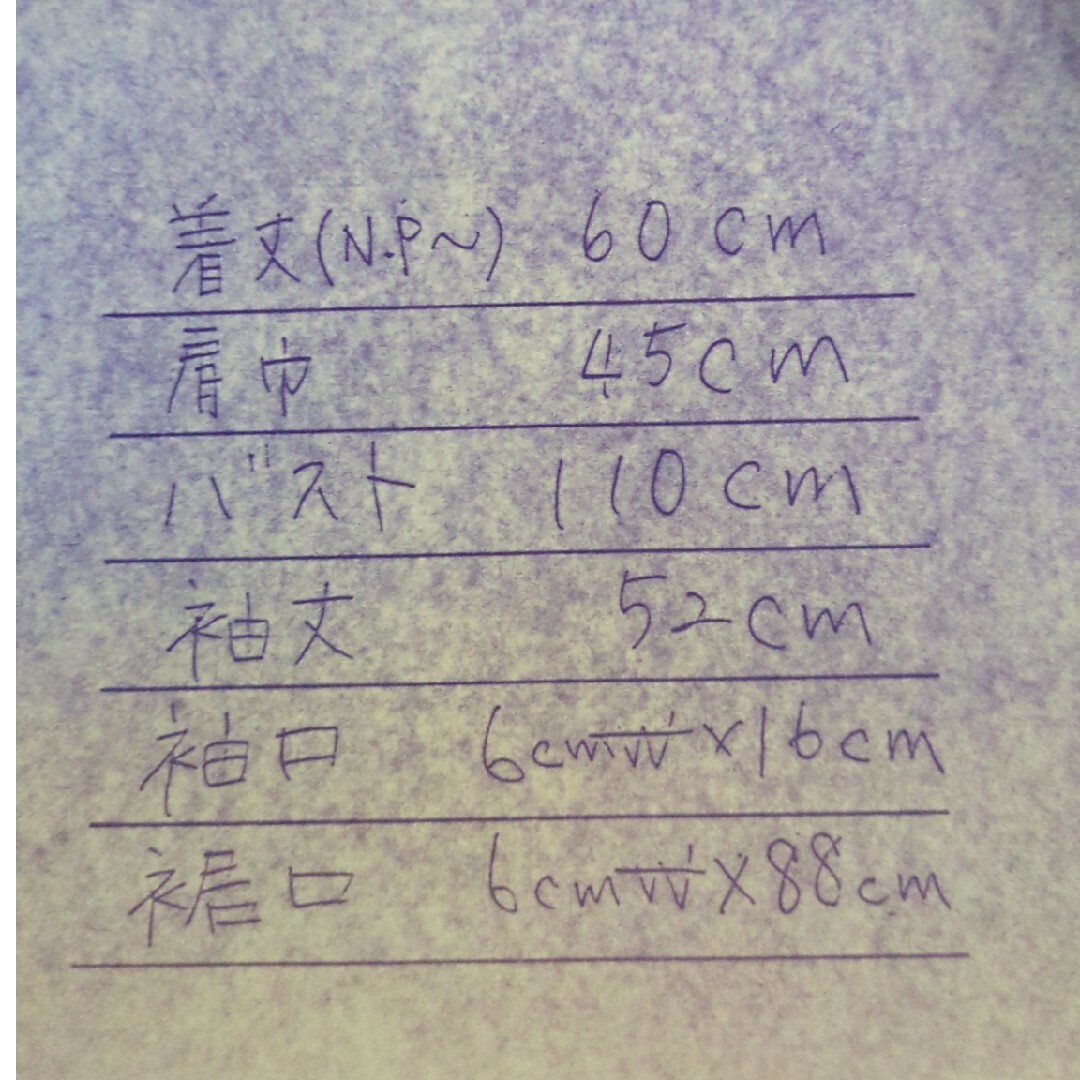 着丈(N.P~) 60cm
肩巾 45cm
バスト 110cm
袖丈 52cm
袖口 6cm × 16cm
裾口 6cm × 88cm